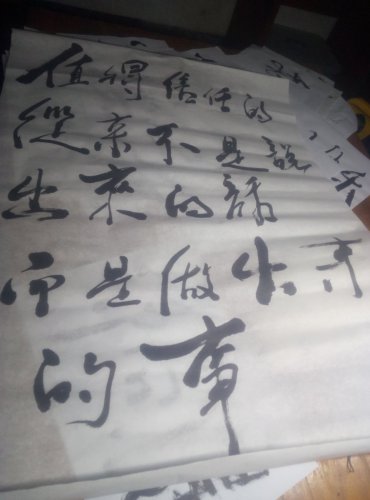 值得信任的
從来不是說
出来的話
而是做出来
的事